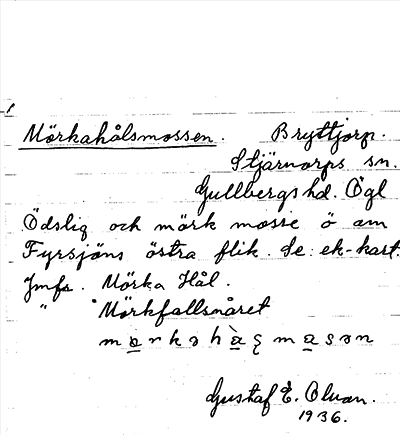 Mörkahålsmossen. Bryttjorp.
Stjärnorps sn.
Gullbergs hd. Ögl
Ödslig och mörk mosse ö om
Fyrsjöns östra flik. Se: ek-kart.
Jmfr. Mörka Hål.
" "Mörkfallsnåret
Gustaf E. Olson.
1936.